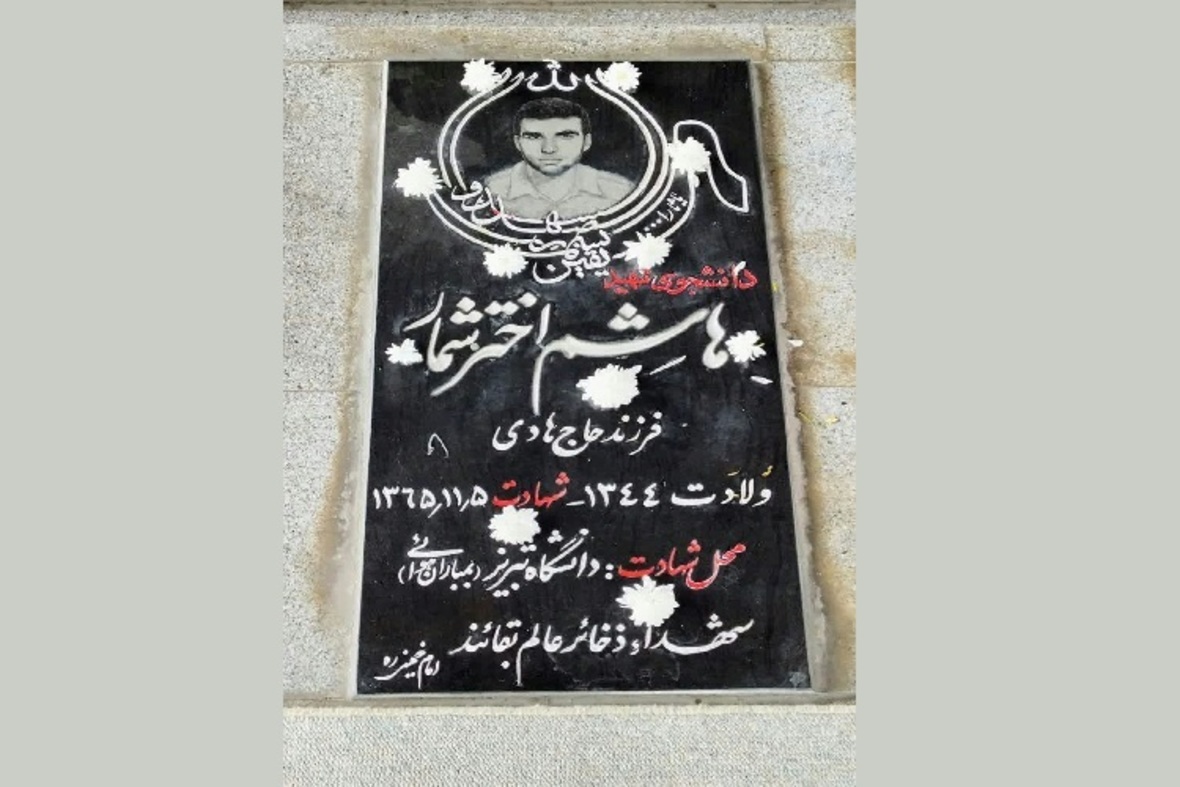 الله
دانشجوی شهید
هاشم اختر شمار
فرزند حاج هادی
ولادت ۱۳۴۴ - شهادت ۱۳۶۵٫۱۱٫۵
محل شهادت : دانشگاه تبریز (بمباران هوائی)
شهداء ذخائر عالم بقائند
امام خمینی ره